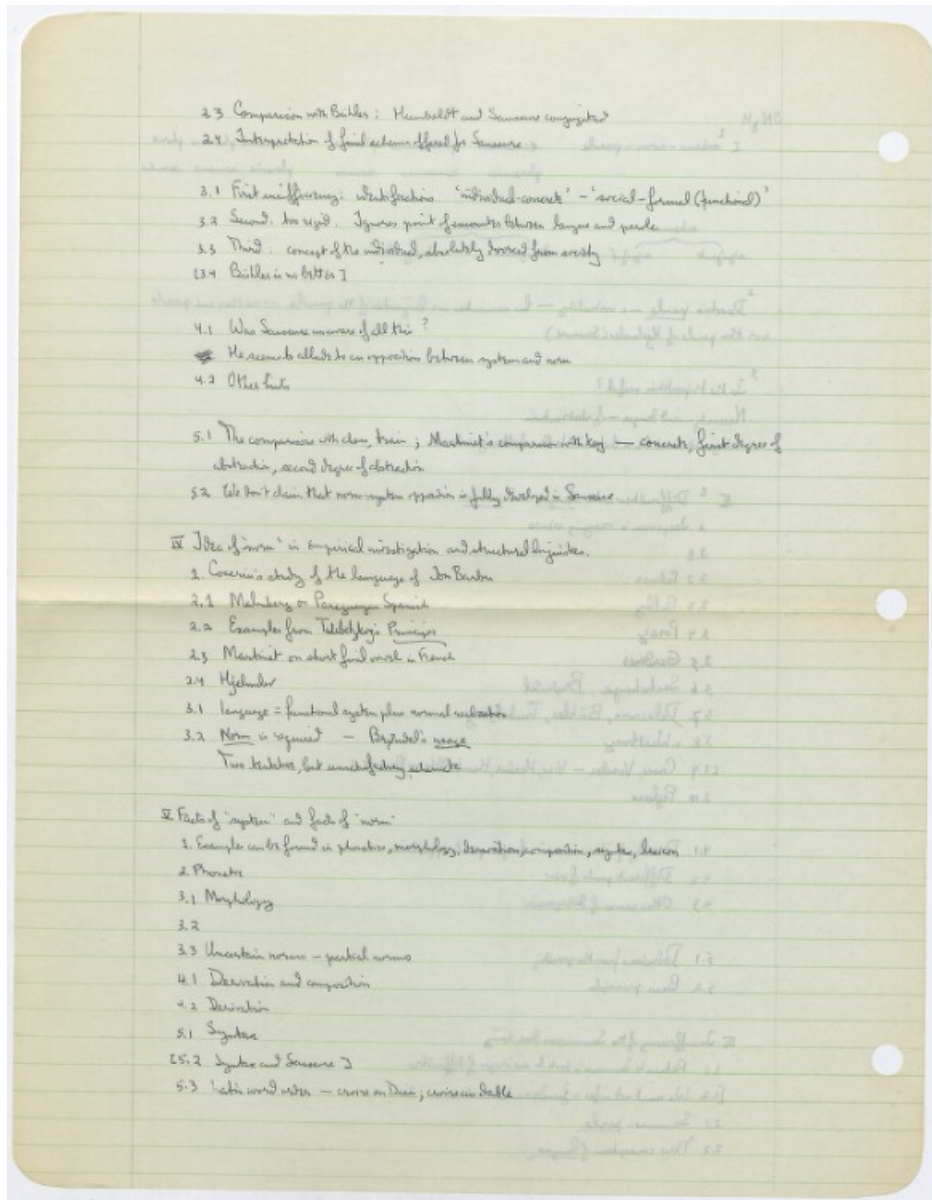 2.3 Comparison with Bühler: Humboldt and Saussure conjugated
2.4 Interpretation of final scheme offered for Saussure
3.1 First insufficiency: identifications 'individual-concrete' - 'social-formal (functional)'
3.2 Second: too rigid. Ignores point of encounter between langue and parole
3.3 Third: concept of the individual, absolutely divorced from society
[3.4 Bühler is no better]
4.1 Was Saussure unaware of all this?
He seems to allude to an opposition between system and norm
4.2 Other hints
5.1 The comparison with chess, train; Martinet's comparison with key — concrete, first degree of
abstraction, second degree of abstraction
5.2 We don't claim that norm-system opposition is fully developed in Saussure
IV Idea of "norm" in empirical investigation and structural linguistics.
1. Coseriu's study of the language of Ion Barbu
2.1 Malmberg on Paraguayan Spanish
2.2 Examples from Trubetzkoy's Principes
2.3 Martinet on short final vowel in French
2.4 Hjelmslev
3.1 language = functional system plus normal realization
3.2 Norm is required — Brøndal's usage
Two tentative, but unsatisfactory schemata
V Facts of "system" and facts of "norm"
1. Examples can be found in phonetics, morphology, derivation, composition, syntax, lexicon
2. Phonetic
3.1 Morphology
3.2
3.3 Uncertain norms – partial norms
4.1 Derivation and composition
4.2 Derivation
5.1 Syntax
[5.2 Syntax and Saussure]
5.3 Latin word order — croire en Dieu; croire au diable